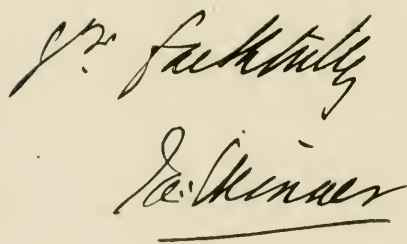 yrs faithfully
Jas: Skinner